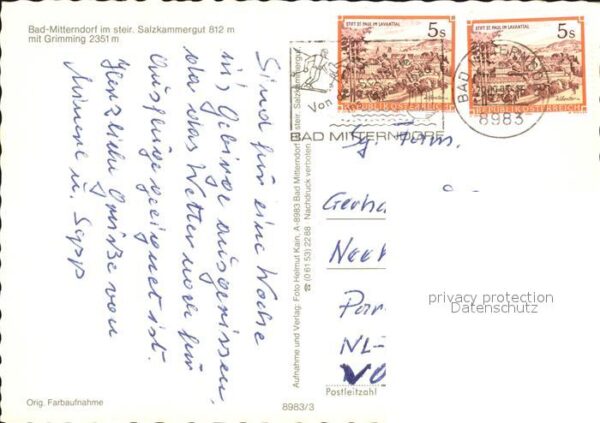 Bad-Mitterndorf im steir. Salzkammergut 812 m
mit Grimming 2351 m
Sind für eine Woche
ins Gebirge ausgerissen,
da das Wetter noch für
Ausflüge geeignet ist.
Herzliche Grüße von
u. Sepp
Aufnahme und Verlag: Foto Helmut Kain, A-8983 Bad Mitterndorf im steir. Salzkammergut.
☎ (0 61 53) 22 88 Nachdruck verboten.
STIFT ST. PAUL IM LAVANTTAL
5 S
REPUBLIK ÖSTERREICH
STIFT ST. PAUL IM LAVANTTAL
5 S
REPUBLIK ÖSTERREICH
Von
BAD MITTERNDORF
BAD MITTERNDORF
8983
Fam.
Gerha
Nach
Par
NL-
VO
privacy protection
Datenschutz
Postleitzahl
Orig. Farbaufnahme
8983/3